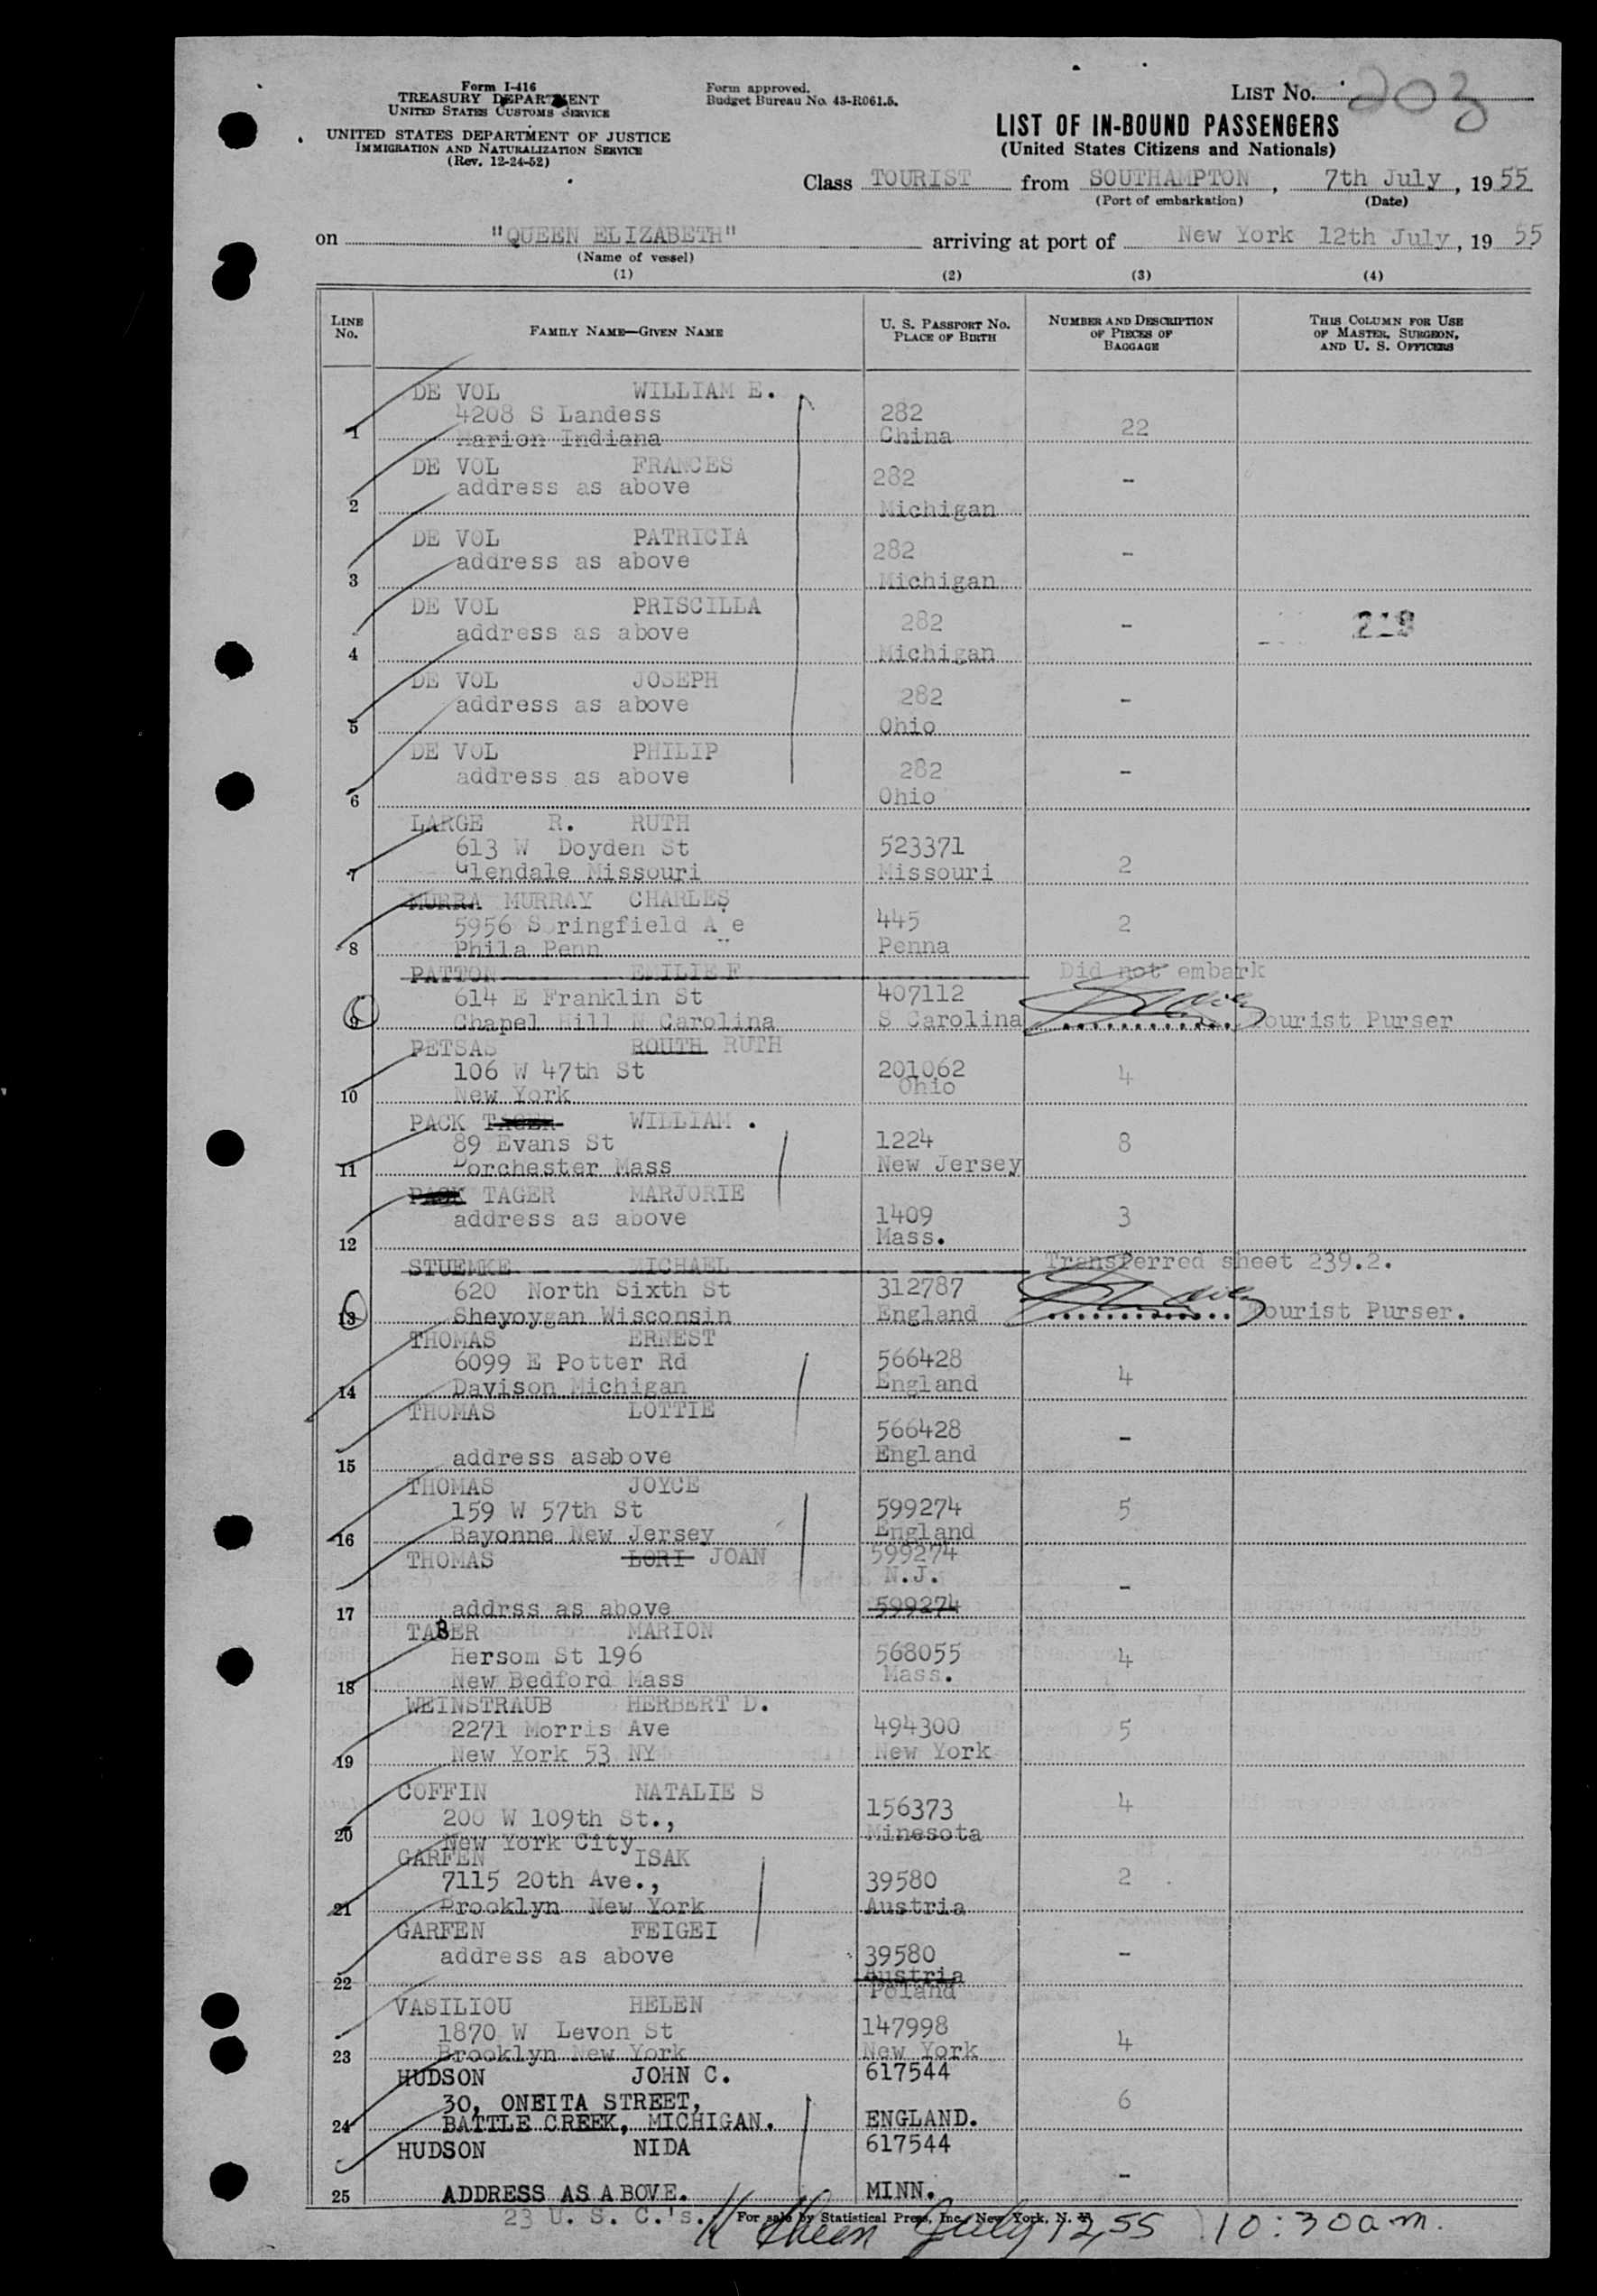 Form I-416
TREASURY DEPARTMENT
UNITED STATES CUSTOMS SERVICE
UNITED STATES DEPARTMENT OF JUSTICE
IMMIGRATION AND NATURALIZATION SERVICE
(Rev. 12-24-52)
Form approved.
Budget Bureau No. 43-R061.5.
LIST NO. 203
LIST OF IN-BOUND PASSENGERS
(United States Citizens and Nationals)
Class TOURIST from SOUTHAMPTON, 7th July, 1955
(Port of embarkation) (Date)
on "QUEEN ELIZABETH" arriving at port of New York 12th July, 1955
(Name of vessel)
(1) (2) (3) (4)
LINE NO. FAMILY NAME—GIVEN NAME U. S. PASSPORT NO. PLACE OF BIRTH NUMBER AND DESCRIPTION OF PIECES OF BAGGAGE THIS COLUMN FOR USE OF MASTER, SURGEON, AND U. S. OFFICERS
DE VOL WILLIAM E.
4208 S Landess 282
1 Marion Indiana China 22
DE VOL FRANCES
address as above 282 -
2 Michigan
DE VOL PATRICIA
address as above 282 -
3 Michigan
DE VOL PRISCILLA
address as above 282 - 219
4 Michigan
DE VOL JOSEPH
address as above 282 -
5 Ohio
DE VOL PHILIP
address as above 282 -
6 Ohio
LARGE R. RUTH
613 W Doyden St 523371
7 Glendale Missouri Missouri 2
MURRA MURRAY CHARLES
5956 S ringfield A e 445 2
8 Phila Penn Penna
PATTON EMILIE F Did not embark
614 E Franklin St 407112
9 Chapel Hill N Carolina S Carolina Tourist Purser
PETSAS ROUTH RUTH
106 W 47th St 201062 4
10 New York Ohio
PACK TAGER WILLIAM .
89 Evans St 1224 8
11 Dorchester Mass New Jersey
PACK TAGER MARJORIE
address as above 1409 3
12 Mass.
STUEMKE MICHAEL Transferred sheet 239.2.
620 North Sixth St 312787
13 Sheyoygan Wisconsin England Tourist Purser.
THOMAS ERNEST
6099 E Potter Rd 566428
14 Davison Michigan England 4
THOMAS LOTTIE
566428 -
15 address asabove England
THOMAS JOYCE
159 W 57th St 599274 5
16 Bayonne New Jersey England
THOMAS LORI JOAN 599274
N.J. -
17 addrss as above 599274
TABER MARION
Hersom St 196 568055 4
18 New Bedford Mass Mass.
WEINSTRAUB HERBERT D.
2271 Morris Ave 494300 5
19 New York 53 NY New York
COFFIN NATALIE S
200 W 109th St., 156373 4
20 New York City Minesota
GARFEN ISAK
7115 20th Ave., 39580 2
21 Brooklyn New York Austria
GARFEN FEIGEI
address as above 39580 -
22 Austria
Poland
VASILIOU HELEN
1870 W Levon St 147998
23 Brooklyn New York New York 4
HUDSON JOHN C. 617544
30, ONEITA STREET, 6
24 BATTLE CREEK, MICHIGAN. ENGLAND.
HUDSON NIDA 617544
-
25 ADDRESS AS ABOVE. MINN.
23 U. S. C.'s. For sale by Statistical Press, Inc., New York, N. Y.
July 12, 55 10:30 a.m.